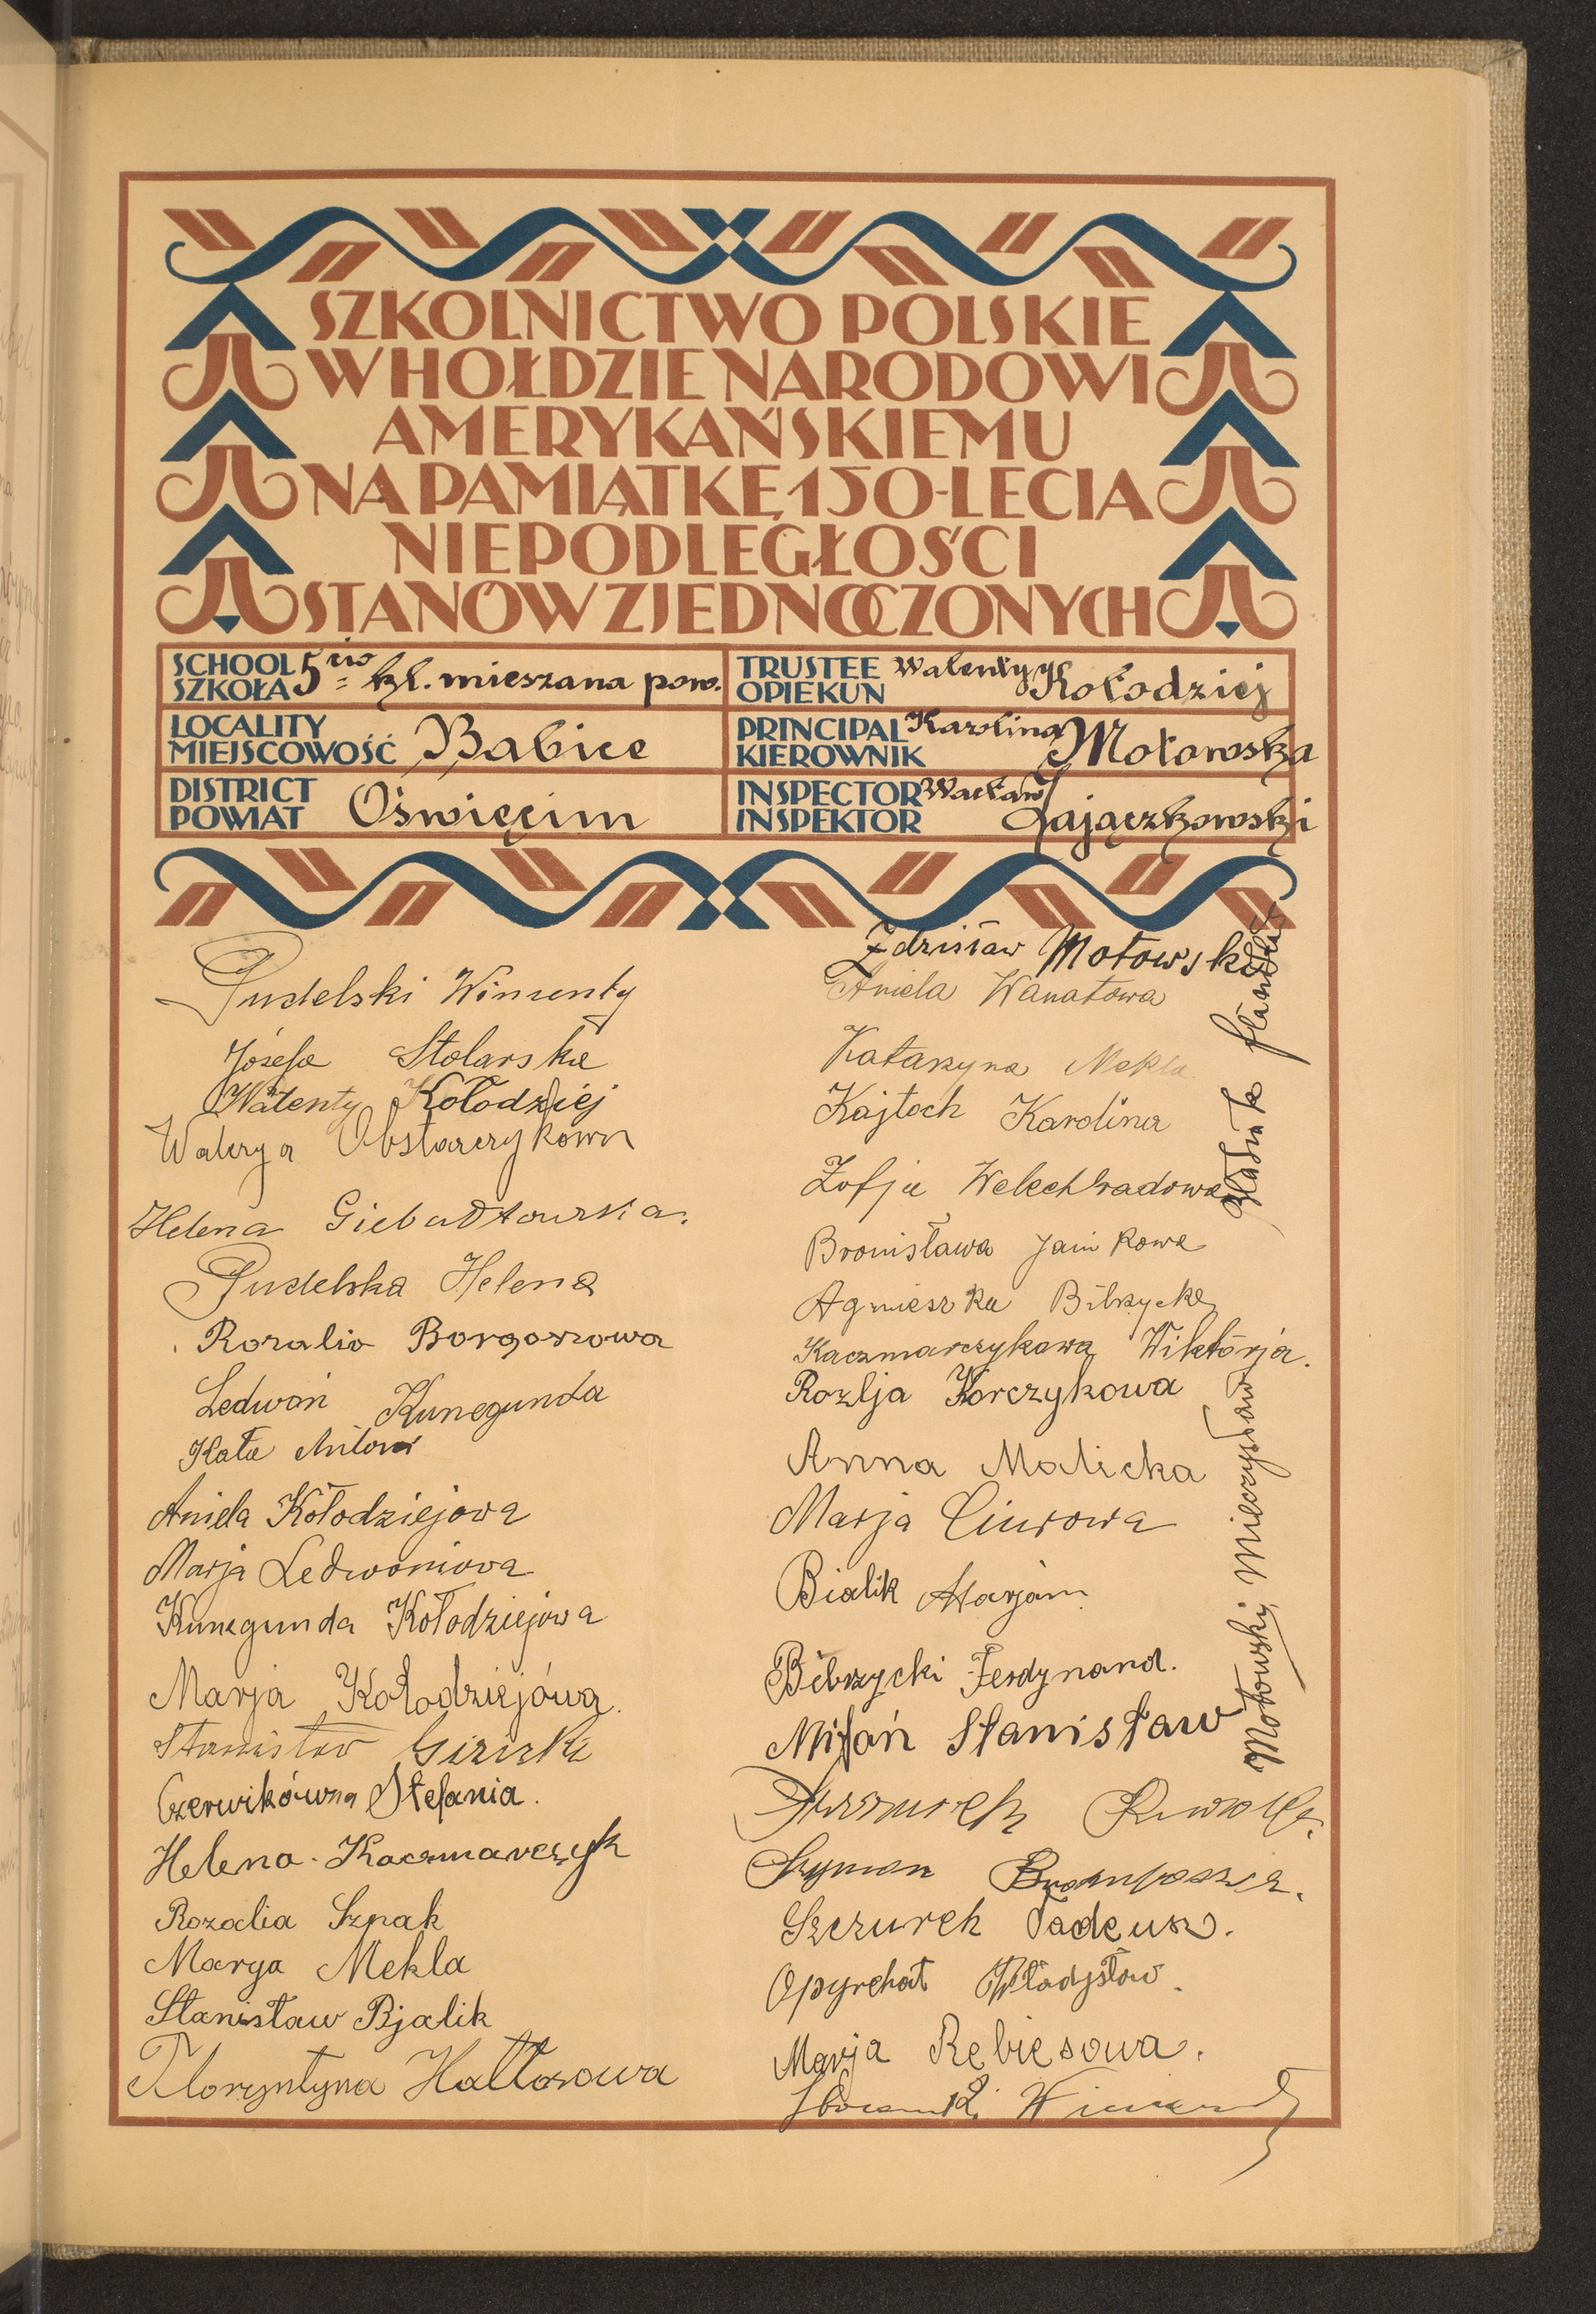 SZKOLNICTWO POLSKIE
W HOŁDZIE NARODOWI
AMERYKAŃSKIEMU
NA PAMIĄTKĘ 150-LECIA
NIEPODLEGŁOŚCI
STANÓW ZJEDNOCZONYCH
SCHOOL
SZKOŁA 5 cio = kl. mieszana pow.
TRUSTEE
OPIEKUN Walenty Kołodziej
LOCALITY
MIEJSCOWOŚĆ Babice
PRINCIPAL
KIEROWNIK Karolina Motowska
DISTRICT
POWIAT Oświęcim
INSPECTOR
INSPEKTOR Wacław Zajączkowski
Pudelski Wincenty
Józefa Stolarska
Walenty Kołodziej
Walerya Obstarczykowa
Helena Giebułtowska.
Pudelska Helena
Rozalia Borgoszowa
Ledwoń Kunegunda
Kała Antoni
Aniela Kołodziejowa
Marja Ledwoniowa
Kunegunda Kołodziejowa
Marja Kołodziejówa.
Stanisław
Czerwikówna Stefania.
Helena Kaczmarczyk
Rozalia Sznak
Marya Mekla
Stanisław Bjalik
Floryntyna Hattasowa
Zdzisław Motowski
Aniela Wanatowa
Katarzyna Mekla
Kajtoch Karolina
Zofja Welechradowa
Bronisława Janikowa
Agnieszka Bibrzycka
Kaczmarczykowa Wiktorja.
Rozlja Korczykowa
Anna Malicka
Marja Ciurowa
Bialik Marjan
Bibrzycki Ferdynand.
Mitań Stanisław
Szymon
Szczurek Tadeusz.
Opyrchał Władysław.
Marja Rębiesowa.
Motowski Mieczysław